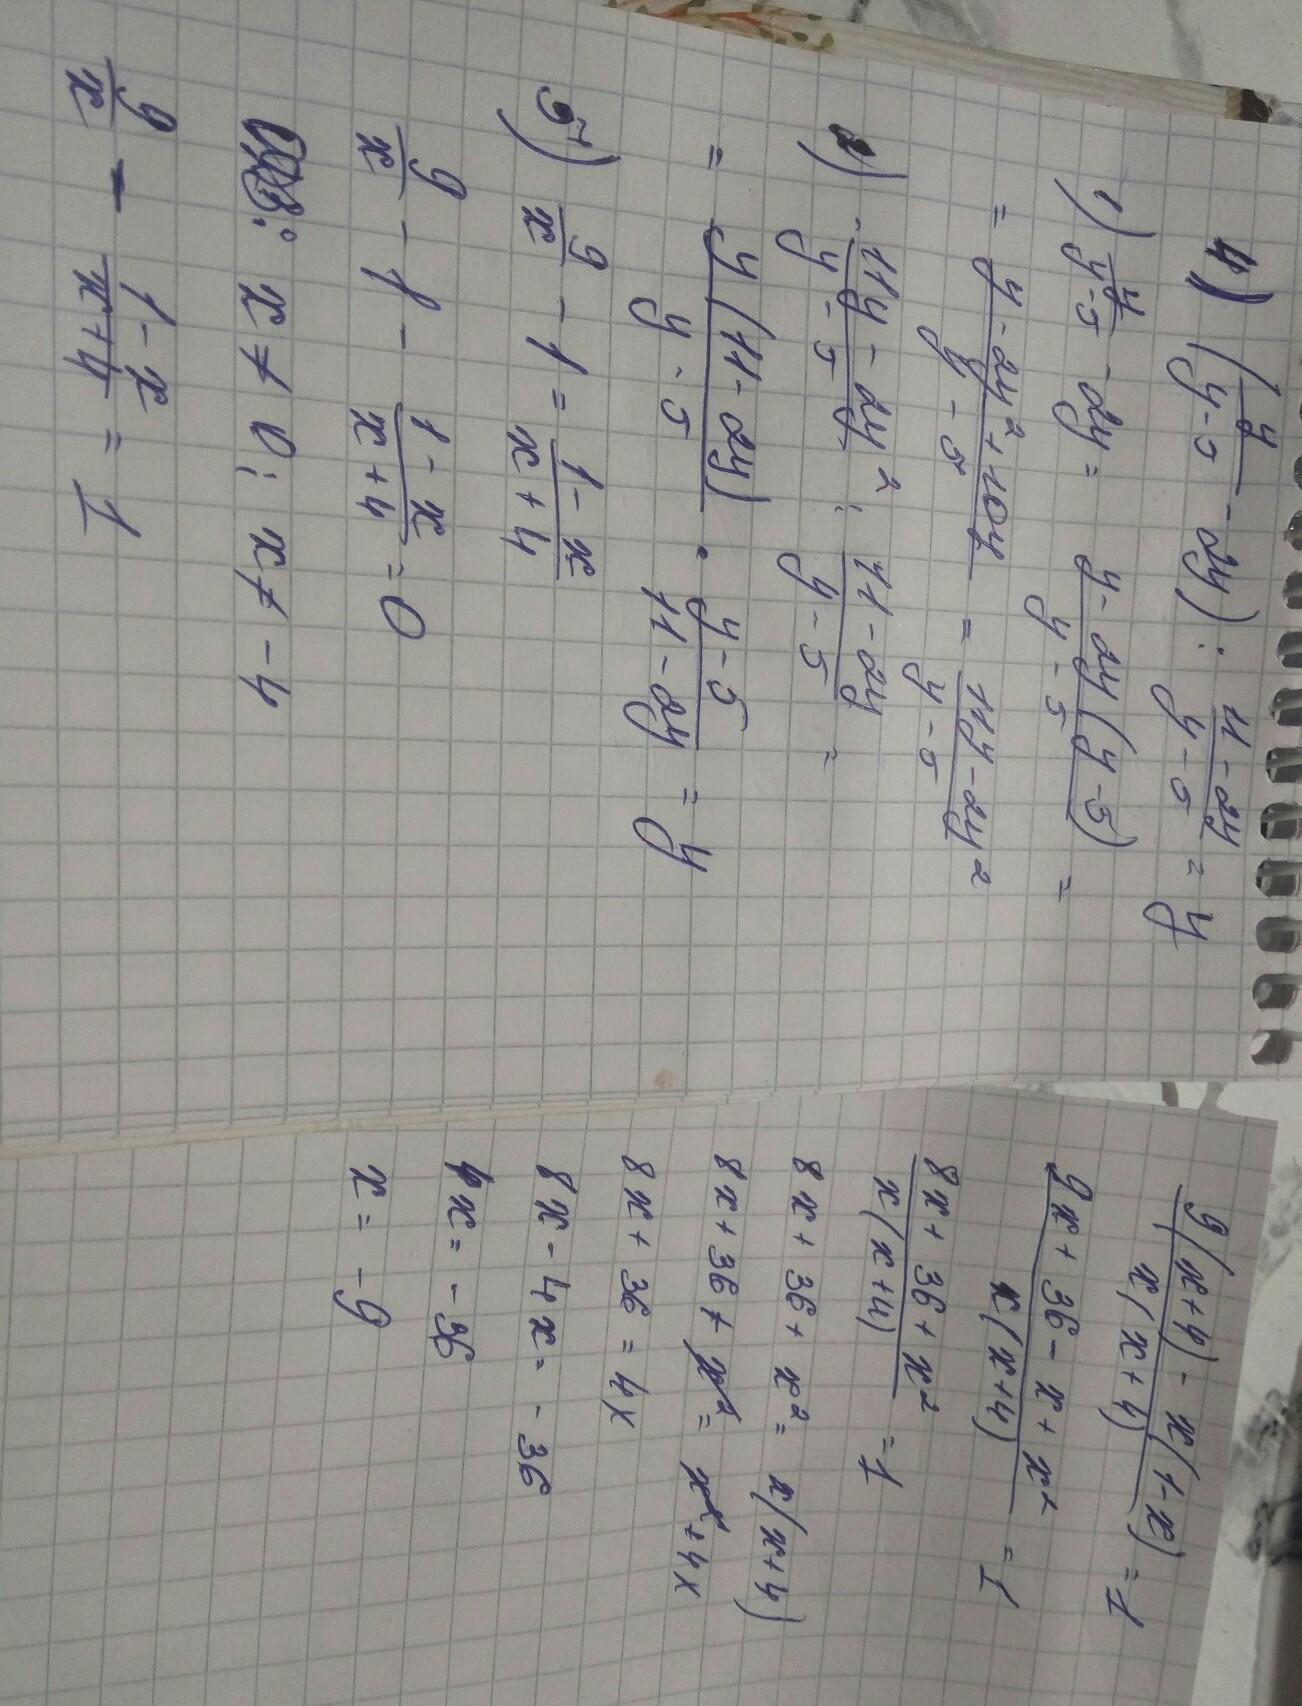 4) (y/(y-5) - 2y) : (11-2y)/(y-5) = y
1) y/(y-5) - 2y = (y-2y(y-5))/(y-5) =
= (y-2y²+10y)/(y-5) = (11y-2y²)/(y-5)
2) (11y-2y²)/(y-5) : (11-2y)/(y-5) =
= y(11-2y)/(y-5) · (y-5)/(11-2y) = y
5) 9/x - 1 = (1-x)/(x+4)
9/x - 1 - (1-x)/(x+4) = 0
: x ≠ 0; x ≠ -4
9/x - (1-x)/(x+4) = 1
(9(x+4) - x(1-x))/(x(x+4)) = 1
(9x+36-x+x²)/(x(x+4)) = 1
(8x+36+x²)/(x(x+4)) = 1
8x+36+x² = x(x+4)
8x+36+x² = x²+4x
8x+36 = 4x
8x-4x = -36
4x = -36
x = -9